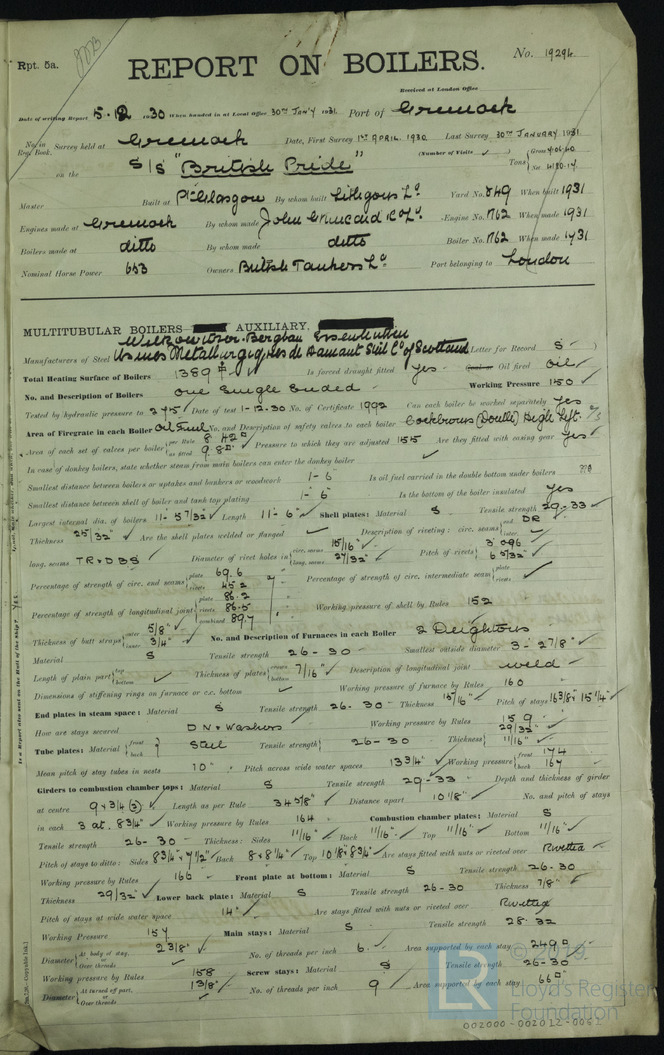 Rpt. 5a.
REPORT ON BOILERS.
No. 19294.
Received at London Office
Date of writing Report 5-12-1930 When handed in at Local Office 30TH JANY 1931 Port of Greenock
No. in Reg. Book. Survey held at Greenock Date, First Survey 1ST APRIL 1930 Last Survey 30TH JANUARY 1931
on the S/S "British Pride" (Number of Visits ) Tons Gross Net
Master Built at Pt Glasgow By whom built Lithgows Ld Yard No. 849 When built 1931
Engines made at Greenock By whom made John G. Kincaid & Co Ld Engine No. 762 When made 1931
Boilers made at ditto By whom made ditto Boiler No. 762 When made 1931
Nominal Horse Power 653 Owners British Tankers Ld Port belonging to London
MULTITUBULAR BOILERS AUXILIARY,
Witkowitzer Bergbau
Manufacturers of Steel Steel Co of Scotland Letter for Record S
Total Heating Surface of Boilers 1389 Is forced draught fitted yes Oil fired oil
No. and Description of Boilers one Single Ended Working Pressure 150
Tested by hydraulic pressure to 275 Date of test 1-12-30 No. of Certificate 1992 Can each boiler be worked separately yes
Area of Firegrate in each Boiler Oil Fuel No. and Description of safety valves to each boiler Cockburns (Double) High Lift
Area of each set of valves per boiler per Rule 8.42 as fitted 9.8 Pressure to which they are adjusted 155 Are they fitted with easing gear yes
In case of donkey boilers, state whether steam from main boilers can enter the donkey boiler
Smallest distance between boilers or uptakes and bunkers or woodwork 1-6 Is oil fuel carried in the double bottom under boilers no
Smallest distance between shell of boiler and tank top plating 1-6" Is the bottom of the boiler insulated yes
Largest internal dia. of boilers 11-5 7/32 Length 11-6" Shell plates: Material S Tensile strength 29-33
Thickness 25/32" Are the shell plates welded or flanged Description of riveting: circ. seams end DR inter.
long. seams TR & DBS Diameter of rivet holes in circ. seams 15/16" long. seams 27/32" Pitch of rivets 3.096 6 5/32"
Percentage of strength of circ. end seams plate 69.6 rivets 45.2 Percentage of strength of circ. intermediate seam plate rivets
Percentage of strength of longitudinal joint plate 86.2 rivets 86.5 combined 89.7 Working pressure of shell by Rules 152
Thickness of butt straps outer 5/8" inner 3/4" No. and Description of Furnaces in each Boiler 2 Deightons
Material S Tensile strength 26-30 Smallest outside diameter 3-2 7/8"
Length of plain part top bottom Thickness of plates crown bottom 7/16" Description of longitudinal joint weld
Dimensions of stiffening rings on furnace or c.c. bottom Working pressure of furnace by Rules 160
End plates in steam space: Material S Tensile strength 26-30 Thickness 15/16" Pitch of stays 16 3/8 x 15 1/4"
How are stays secured DN & Washers Working pressure by Rules 159
Tube plates: Material front back Steel Tensile strength 26-30 Thickness 29/32" 11/16"
Mean pitch of stay tubes in nests 10" Pitch across wide water spaces 13 3/4 Working pressure front 174 back 167
Girders to combustion chamber tops: Material S Tensile strength 29-33 Depth and thickness of girder
at centre 9 x 3/4 (2) Length as per Rule 34 5/8" Distance apart 10 1/8" No. and pitch of stays
in each 3 at 8 3/4" Working pressure by Rules 164 Combustion chamber plates: Material S
Tensile strength 26-30 Thickness: Sides 11/16" Back 11/16" Top 11/16" Bottom 11/16"
Pitch of stays to ditto: Sides 8 3/4 x 7 1/2" Back 8 x 8 1/4" Top 10 1/8 x 8 3/4" Are stays fitted with nuts or riveted over Rivetted
Working pressure by Rules 166 Front plate at bottom: Material S Tensile strength 26-30
Thickness 29/32" Lower back plate: Material S Tensile strength 26-30 Thickness 7/8"
Pitch of stays at wide water space 14" Are stays fitted with nuts or riveted over Rivetted
Working Pressure 157 Main stays: Material S Tensile strength 28-32
Diameter At body of stay, or Over threads 2 3/8" No. of threads per inch 6 Area supported by each stay 249
Working pressure by Rules 158 Screw stays: Material S Tensile strength 26-30
Diameter At turned off part, or Over threads 1 3/8" No. of threads per inch 9 Area supported by each stay 66
© 2019
LR
Lloyd's Register
Foundation
002000-002012-0061